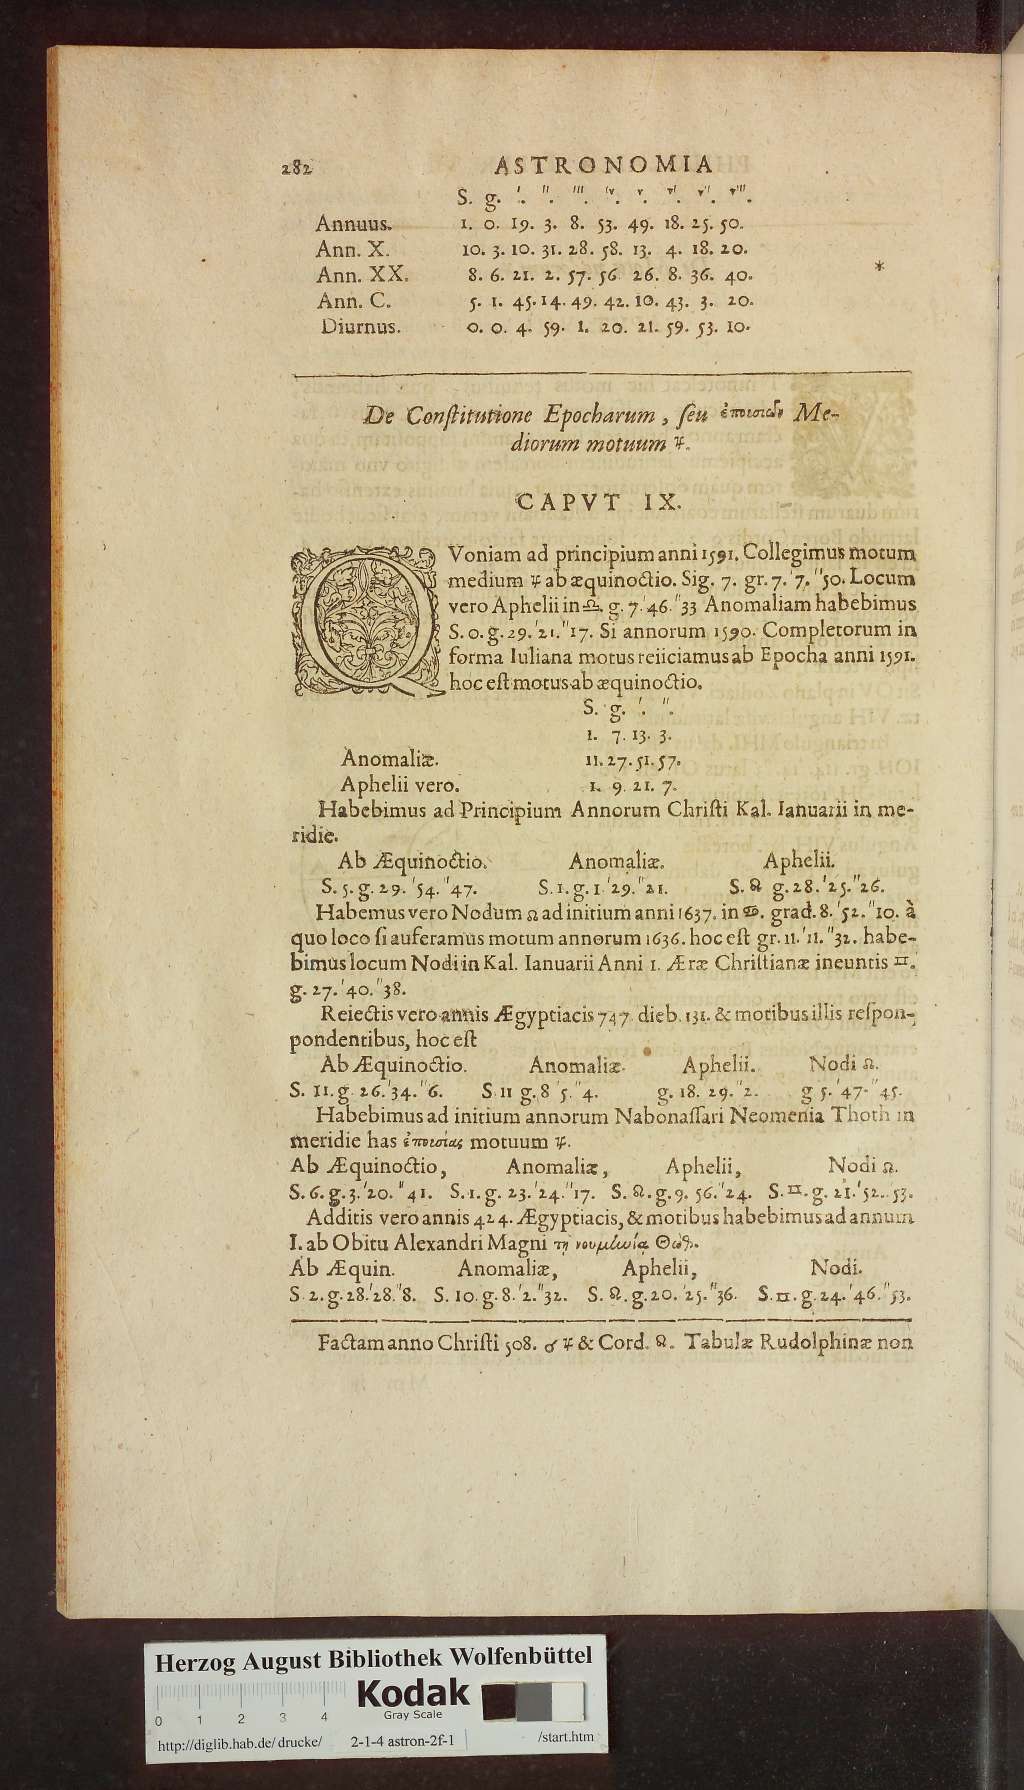 282 ASTRONOMIA
S. g. '. ''. '''. ıv. v. vı. vıı. vııı.
Annuus. 1. 0. 19. 3. 8. 53. 49. 18. 25. 50.
Ann. X. 10. 3. 10. 31. 28. 58. 13. 4. 18. 20.
Ann. XX. 8. 6. 21. 2. 57. 56 26. 8. 36. 40. *
Ann. C. 5. 1. 45. 14. 49. 42. 10. 43. 3. 20.
Diurnus. 0. 0. 4. 59. 1. 20. 21. 59. 53. 10.
De Constitutione Epocharum, seu Me-
diorum motuum ♃.
CAPVT IX.
QVoniam ad principium anni 1591. Collegimus motum
medium ♃ ab æquinoctio. Sig. 7. gr. 7. '7. ''50. Locum
vero Aphelii in ♎. g. 7. '46. ''33 Anomaliam habebimus
S. 0. g. 29. '21. ''17. Si annorum 1590. Completorum in
forma Iuliana motus reiiciamus ab Epocha anni 1591.
hoc est motus ab æquinoctio.
S. g. '. ''.
1. 7. 13. 3.
Anomaliæ. 11. 27. 51. 57.
Aphelii vero. 1. 9. 21. 7.
Habebimus ad Principium Annorum Christi Kal. Ianuarii in me-
ridie.
Ab Æquinoctio. Anomaliæ. Aphelii.
S. 5. g. 29. '54. ''47. S. 1. g. 1. '29. ''21. S. ♌ g. 28. '25. ''26.
Habemus vero Nodum ☊ ad initium anni 1637. in ♋. grad. 8. '52. ''10. à
quo loco si auferamus motum annorum 1636. hoc est gr. 11. '11. ''32. habe-
bimus locum Nodi in Kal. Ianuarii Anni 1. Æræ Christianæ ineuntis ♊.
g. 27. '40. ''38.
Reiectis vero annis Ægyptiacis 747. dieb. 131. & motibus illis respon-
pondentibus, hoc est
Ab Æquinoctio. Anomaliæ. Aphelii. Nodi ☊.
S. 11. g. 26. '34. ''6. S. 11 g. 8 '5. ''4. g. 18. 29. ''2. g 5. '47. ''45.
Habebimus ad initium annorum Nabonassari Neomenia Thoth in
meridie has ἐποισίας motuum ♃.
Ab Æquinoctio, Anomaliæ, Aphelii, Nodi ☊.
S. 6. g. 3. '20. ''41. S. 1. g. 23. '24. ''17. S. ♌. g. 9. 56. ''24. S. ♊. g. 21. '52. 53.
Additis vero annis 424. Ægyptiacis, & motibus habebimus ad annum
I. ab Obitu Alexandri Magni τῇ νουμηνίᾳ Θώθ.
Ab Æquin. Anomaliæ, Aphelii, Nodi.
S. 2. g. 28. '28. ''8. S. 10. g. 8. '2. ''32. S. ♌. g. 20. '25. ''36. S. ♊. g. 24. '46. ''53.
Factam anno Christi 508. ☌ ♃ & Cord. ♌. Tabulæ Rudolphinæ non
Herzog August Bibliothek Wolfenbüttel
Kodak
Gray Scale
0 1 2 3 4
http://diglib.hab.de/drucke/ 2-1-4 astron-2f-1 /start.htm